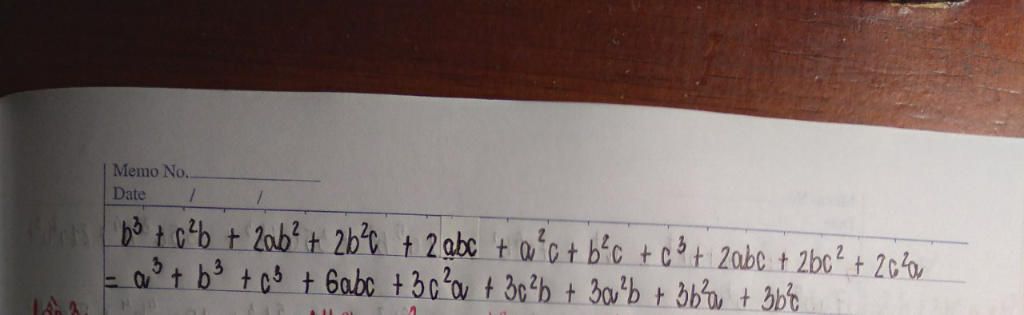 Memo No.
Date / /
b³ + c²b + 2ab² + 2b²c + 2abc + a²c + b²c + c³ + 2abc + 2bc² + 2c²a
= a³ + b³ + c³ + 6abc + 3c²a + 3c²b + 3a²b + 3b²a + 3b²c